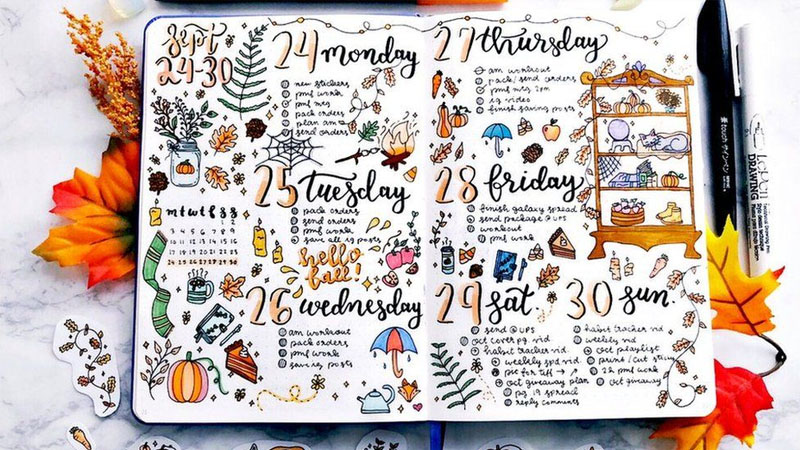 Sept
24-30
24 monday
new stickers
pmf work
pmf mtg
pack orders
plan am
send orders
m t w t f s s
3 4 5 6 7 8 9
10 11 12 13 14 15 16
17 18 19 20 21 22 23
24 25 26 27 28 29 30
25 tuesday
pack orders
send orders
pmf work
save ig posts
hello
fall!
26 wednesday
am workout
pack orders
pmf work
save ig posts
27 thursday
am workout
pack/send orders
pmf mtg 2pm
ig video
finish saving posts
28 friday
finish galaxy spread
send package @ UPS
workout
pmf work
29 sat
send @ UPS
oct cover pg. vid
habit tracker vid.
weekly spd vid.
pic for tiff
oct giveaway plan
pg 19 spread
reply comments
30 sun.
habit tracker vid
weekly vid
oct playlist
print / cut
22 pmf work
oct giveaway
touch
Le Pen
DRAWING